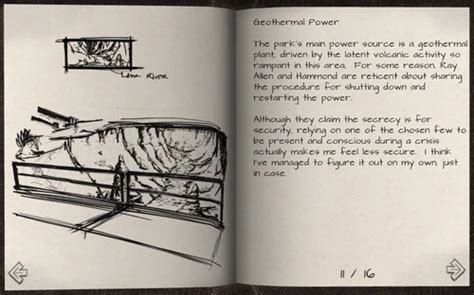 Lava River
Geothermal Power
The park's main power source is a geothermal
plant, driven by the latent volcanic activity so
rampant in this area. For some reason, Ray
Allen and Hammond are reticent about sharing
the procedure for shutting down and
restarting the power.
Although they claim the secrecy is for
security, relying on one of the chosen few to
be present and conscious during a crisis
actually makes me feel less secure. I think
I've managed to figure it out on my own, just
in case.
11 / 16